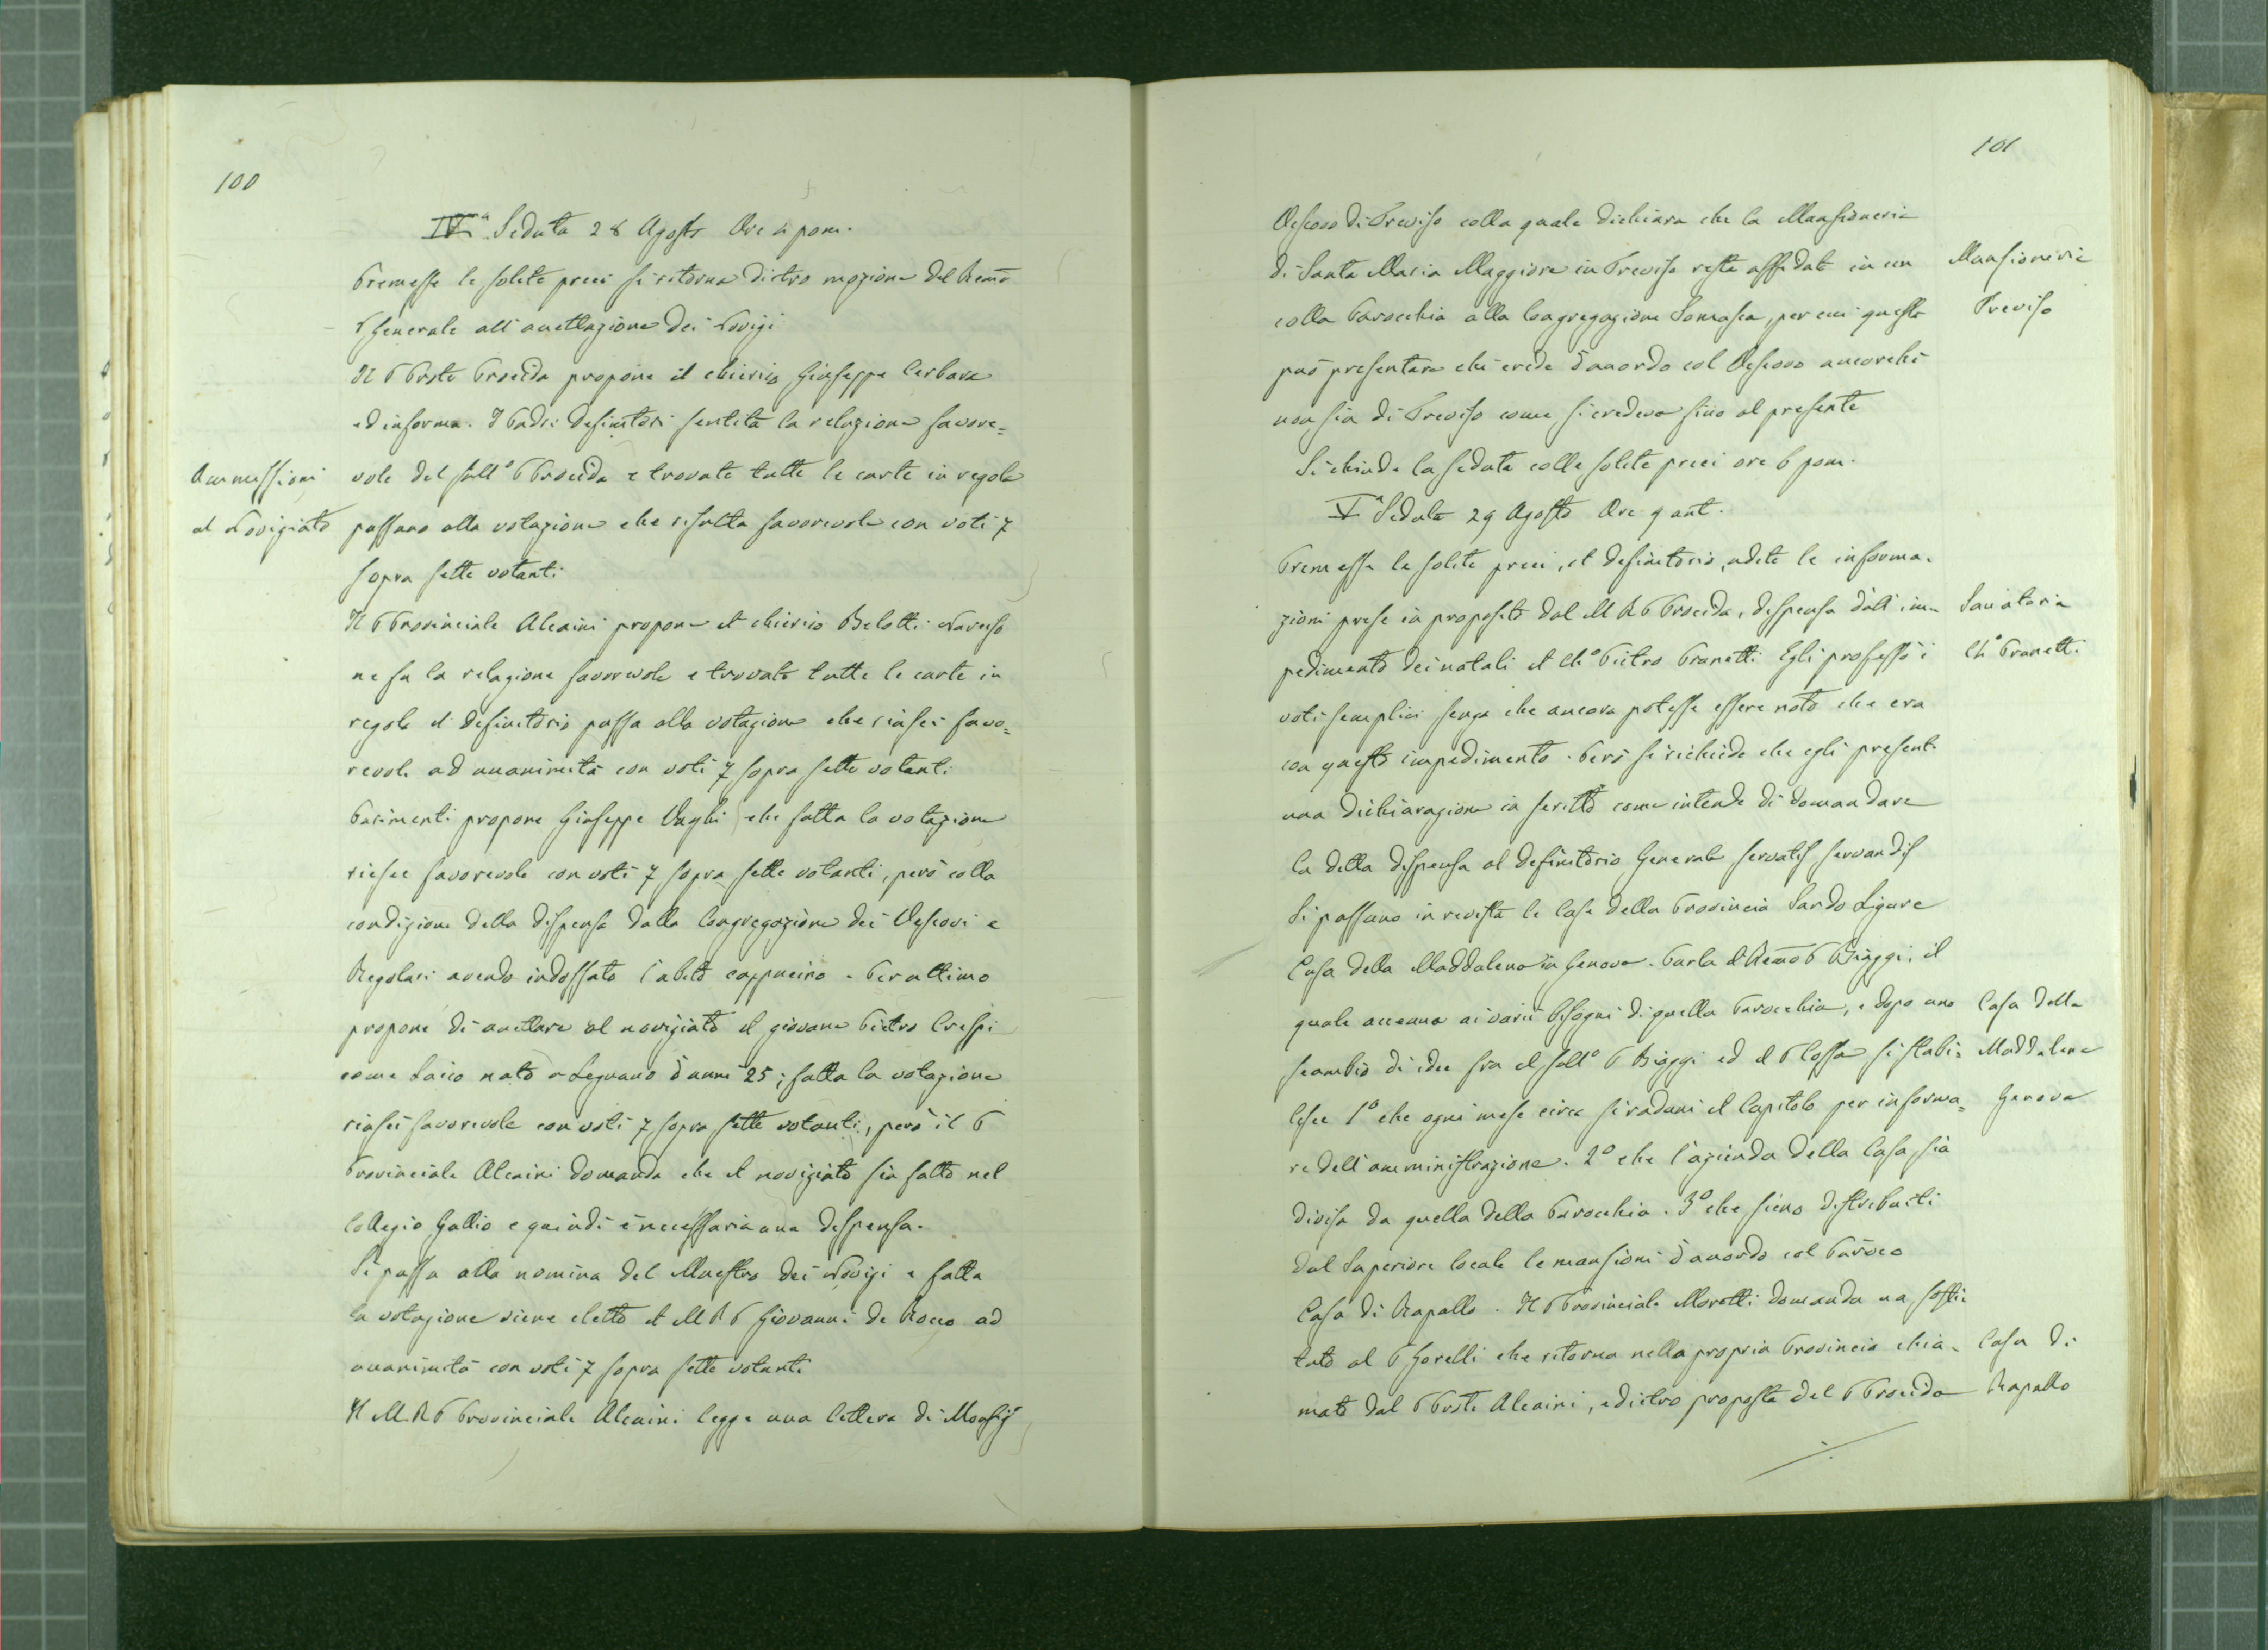 100
IVª Seduta 28 Agosto Ore 4 pom.
Premesse le solite preci si ritorna dietro mozione del Remo
P Generale all'accettazione dei Novizi
Il P Prste Procida propone il chierico Giuseppe Cerbara
ed informa. I Padri Definitori sentita la relazione favore=
Ammessioni
vole del sullº P Procida e trovate tutte le carte in regola
al Noviziato
passano alla votazione che risulta favorevole con voti 7
sopra sette votanti
Il P Provinciale Alcaini propone il chierico Belotti
ne fa la relazione favorevole e trovato tutte le carte in
regola il definitorio passa alla votazione che riuscì favo=
revole ad unanimità con voti 7 sopra sette votanti
Parimenti propone Giuseppe Vaghi che fatta la votazione
riesce favorevole con voti 7 sopra sette votanti, però colla
condizione della dispensa dalla Congregazione dei Vescovi e
Regolari avendo indossato l'abito cappucino. Per ultimo
propone di accettare al noviziato il giovane Pietro Crespi
come Laico nato a Legnano d'anni 25; fatta la votazione
riuscì favorevole con voti 7 sopra sette votanti, però il P
Provinciale Alcaini domanda che il noviziato sia fatto nel
Collegio Gallio e quindi è necessaria una dispensa.
Si passa alla nomina del Maestro dei Novizi e fatta
la votazione viene eletto il M R P Giovanni De Rocco ad
unanimità con voti 7 sopra sette votanti
Il M. R P Provinciale Alcaini legge una lettera di Monsigr
101
Vescovo di Treviso colla quale dichiara che la Mansioneria
di Santa Maria Maggiore in Treviso resta affidata in un
Mansioneria
colla Parocchia alla Congregazione Somasca, per cui questa
Treviso
può presentare chi crede d'accordo col Vescovo ancorchè
non sia di Treviso come si credeva sino al presente
Si chiude la seduta colle solite preci ore 6 pom.
Vª Seduta 29 Agosto Ore 9 ant.
Premesse le solite preci, il definitorio, udite le informa-
zioni prese in proposito dal M R P Procida, dispensa dall'im-
Sanatoria
pedimento dei natali il Chº Pietro Pranetti Egli professò i
Chº Pranetti
voti semplici senza che ancora potesse essere noto che era
con questo impedimento. Però si richiede che egli presenti
una dichiarazione in scritto come intende di domandare
la detta dispensa al definitorio Generale servatis servandis
Si passano in revista le Case della Provincia Sardo Ligure
Casa della Maddalena in Genova. Parla il Remo P Biaggi, il
quale accenna ai varii bisogni di quella Parocchia, e dopo uno
Casa della
scambio di idee fra il sullº P Biaggi ed il P Cossa si stabi=
Maddalena
lisce 1º che ogni mese circa si raduni il Capitolo per informa=
Genova
re dell'amministrazione. 2º che l'azienda della Casa sia
divisa da quella della Parocchia. 3º che sieno distribuiti
dal Superiore locale le mansioni d'accordo col Paroco
Casa di Rapallo. Il P Provinciale Moretti domanda un sosti=
tuto al P Gorelli che ritorna nella propria Provincia chia-
Casa di
mato dal P Prste Alcaini, e dietro proposta del P Procida
Rapallo